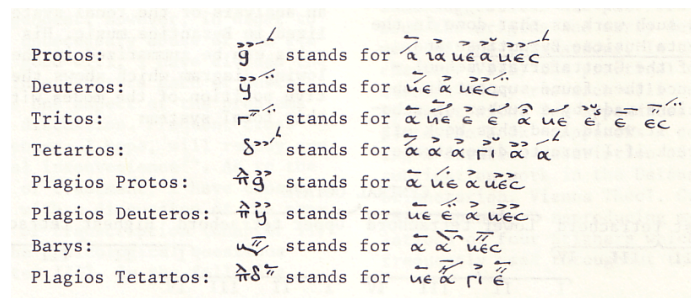 Protos: stands for α να νε α νες
Deuteros: stands for νε α νες
Tritos: stands for α νε ε ε α νε ε ε ες
Tetartos: stands for α α α γι α α
Plagios Protos: stands for α νε α νες
Plagios Deuteros: stands for νε ε α νες
Barys: stands for α α νες
Plagios Tetartos: stands for νε α γι ε